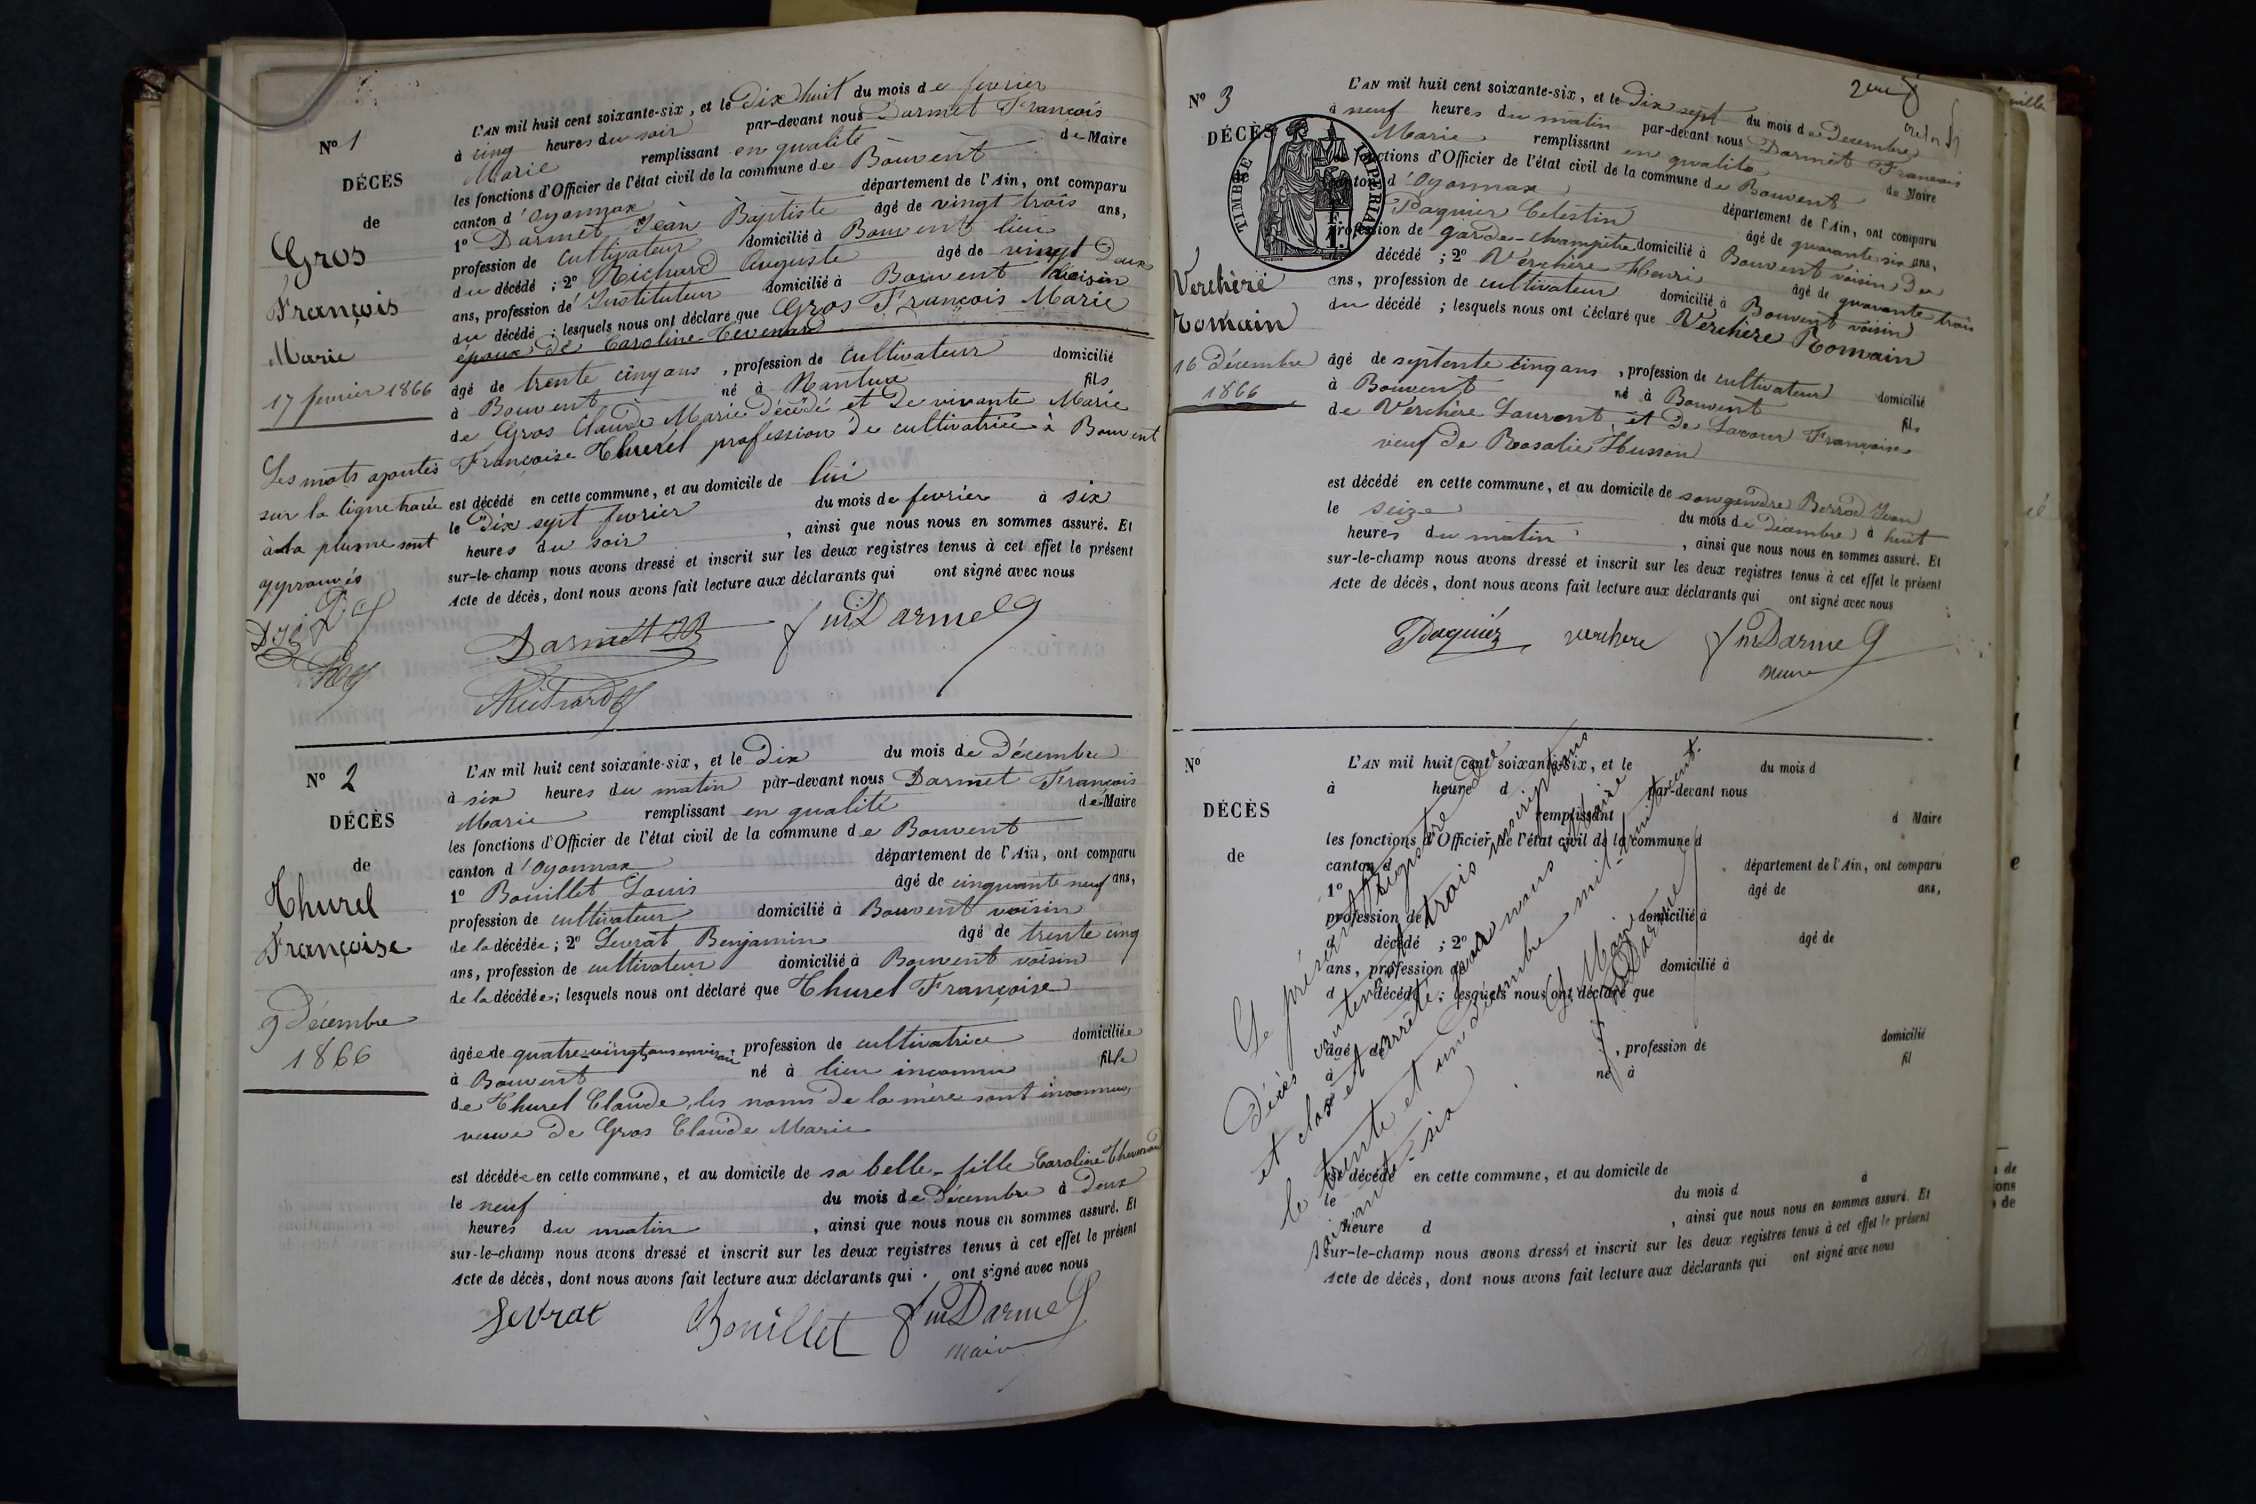 N° 1
DÉCÈS
de
Gros
François
Marie
17 fevrier 1866
Les mots ajoutés
sur la ligne tracée
à la plume sont
approuvés
L'AN mil huit cent soixante-six, et le Dix huit du mois de fevrier
à cinq heures du soir par-devant nous Darmet François
Marie remplissant en qualité de Maire
les fonctions d'Officier de l'état civil de la commune de Bouvent
canton d'Oyonnax département de l'Ain, ont comparu
1° Darmet Jean Baptiste âgé de vingt trois ans,
profession de cultivateur domicilié à Bouvent lieu
du décédé ; 2° Richard Auguste âgé de vingt Deux
ans, profession de Instituteur domicilié à Bouvent voisin
du décédé ; lesquels nous ont déclaré que Gros François Marie
époux de Caroline Tévenand
âgé de trente cinq ans, profession de cultivateur domicilié
à Bouvent né à Nantua fils
de Gros Claude Marie Décédé et De vivante Marie
Françoise Thurel profession de cultivatrice à Bouvent
est décédé en cette commune, et au domicile de lui
le Dix sept fevrier du mois de fevrier à six
heures du soir, ainsi que nous nous en sommes assuré. Et
sur-le-champ nous avons dressé et inscrit sur les deux registres tenus à cet effet le présent
Acte de décès, dont nous avons fait lecture aux déclarants qui ont signé avec nous
Darmet JB fmDarmet
Richard
N° 2
DÉCÈS
de
Thurel
Françoise
9 Décembre
1866
L'AN mil huit cent soixante-six, et le Dix du mois de Décembre
à six heures du matin par-devant nous Darmet François
Marie remplissant en qualité de Maire
les fonctions d'Officier de l'état civil de la commune de Bouvent
canton d'Oyonnax département de l'Ain, ont comparu
1° Bouillet Louis âgé de cinquante neuf ans,
profession de cultivateur domicilié à Bouvent voisin
de la décédée ; 2° Levrat Benjamin âgé de trente cinq
ans, profession de cultivateur domicilié à Bouvent voisin
de la décédée ; lesquels nous ont déclaré que Thurel Françoise
âgée de quatre-vingt ans environ, profession de cultivatrice domiciliée
à Bouvent né à lieu inconnu fille
de Thurel Claude, les noms de la mère sont inconnus,
veuve de Gros Claude Marie
est décédée en cette commune, et au domicile de sa belle-fille Caroline Thevenand
le neuf du mois de Décembre à Deux
heures du matin, ainsi que nous nous en sommes assuré. Et
sur-le-champ nous avons dressé et inscrit sur les deux registres tenus à cet effet le présent
Acte de décès, dont nous avons fait lecture aux déclarants qui ont signé avec nous
Levrat Bouillet fmDarmet
Maire
2eme
N° 3
DÉCÈS
TIMBRE IMPERIAL
Verchère
Romain
16 Décembre
1866
L'AN mil huit cent soixante-six, et le Dix sept du mois de Decembre
à neuf heures du matin par-devant nous Darmet François
Marie remplissant en qualité de Maire
les fonctions d'Officier de l'état civil de la commune de Bouvent
canton d'Oyonnax département de l'Ain, ont comparu
Paquier Celestin âgé de quarante six ans,
profession de garde-champêtre domicilié à Bouvent voisin Du
décédé ; 2° Verchère Henri âgé de quarante trois
ans, profession de cultivateur domicilié à Bouvent voisin
du décédé ; lesquels nous ont déclaré que Verchère Romain
âgé de septente cinq ans, profession de cultivateur domicilié
à Bouvent né à Bouvent fils
de Verchère Laurent, et De Lacour Françoise
veuf De Rosalie Husson
est décédé en cette commune, et au domicile de son gendre Berrod Jean
le seize du mois de Décembre à huit
heures du matin, ainsi que nous nous en sommes assuré. Et
sur-le-champ nous avons dressé et inscrit sur les deux registres tenus à cet effet le présent
Acte de décès, dont nous avons fait lecture aux déclarants qui ont signé avec nous
Paquier verchere fmDarmet
Maire
N°
DÉCÈS
de
L'AN mil huit cent soixante-six, et le du mois d
à heure d par-devant nous
remplissant d Maire
les fonctions d'Officier de l'état civil de la commune d
canton d département de l'Ain, ont comparu
1° âgé de ans,
profession de domicilié à
d décédé ; 2° âgé de
ans, profession de domicilié à
d décédé ; lesquels nous ont déclaré que
âgé de , profession de domicilié
à né à fil
est décédé en cette commune, et au domicile de
le du mois d à
heure d , ainsi que nous nous en sommes assuré. Et
sur-le-champ nous avons dressé et inscrit sur les deux registres tenus à cet effet le présent
Acte de décès, dont nous avons fait lecture aux déclarants qui ont signé avec nous
Le présent Registre de
Décès contenant trois inscriptions
et clos et arrêté par nous Maire
le trente et un Décembre mil-huit cent
soixante-six
Le Maire
fmDarmet